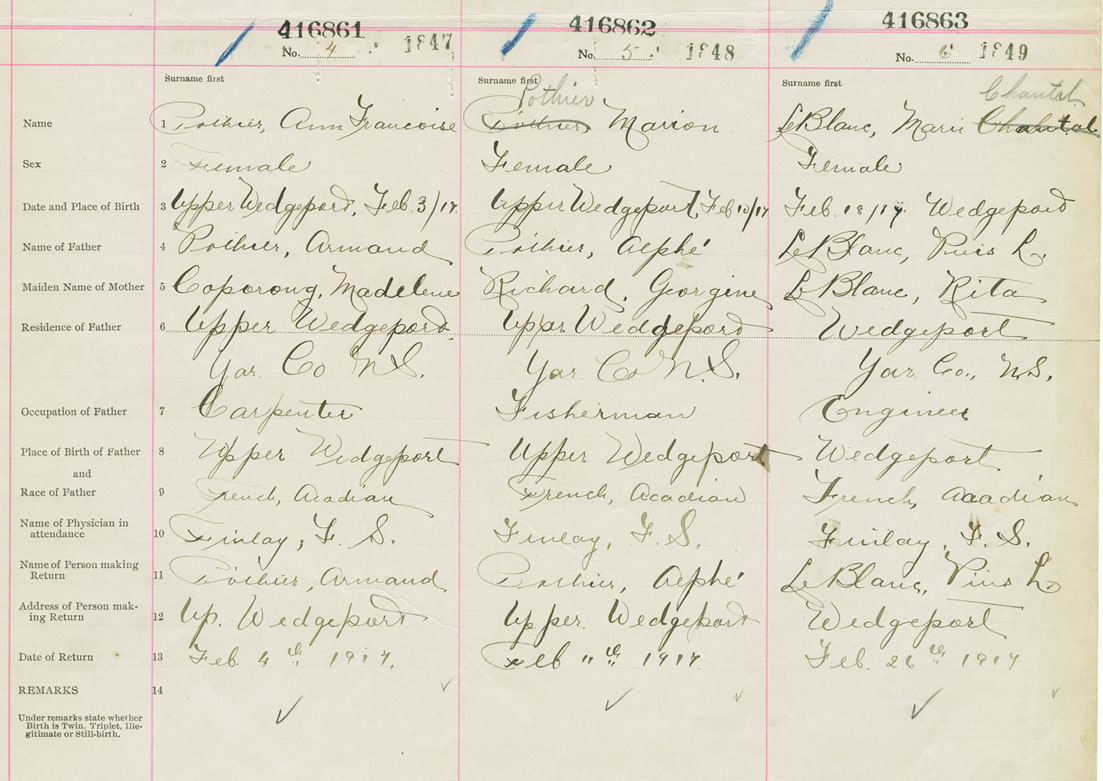 416861 416862 416863
No. 4 1847 No. 5 1848 No. 6 1849
Surname first Surname first Surname first
Pothier Chantal
Name 1 Pothier, Ann Francoise Pothier Marion LeBlanc, Marie Chantal
Sex 2 Female Female Female
Date and Place of Birth 3 Upper Wedgeport, Feb. 3/17. Upper Wedgeport, Feb 10/17 Feb. 18/17. Wedgeport
Name of Father 4 Pothier, Armand Pothier, Alphé LeBlanc, Pius L.
Maiden Name of Mother 5 Coporong, Madelene Richard, Georgine LeBlanc, Rita
Residence of Father 6 Upper Wedgeport. Upper Wedgeport Wedgeport
Yar. Co N.S. Yar. Co N.S. Yar. Co., N.S.
Occupation of Father 7 Carpenter Fisherman Engineer
Place of Birth of Father 8 Upper Wedgeport Upper Wedgeport Wedgeport
and
Race of Father 9 French, Acadian French, Acadian French, Acadian
Name of Physician in
attendance 10 Finlay, F. S. Finlay, F. S. Finlay, F. S.
Name of Person making
Return 11 Pothier, Armand Pothier, Alphé LeBlanc, Pius L.
Address of Person mak-
ing Return 12 Up. Wedgeport Upper. Wedgeport Wedgeport
Date of Return 13 Feb. 4th 1917. Feb 11th 1917. Feb. 26th 1917
REMARKS 14
Under remarks state whether
Birth is Twin, Triplet, Ille-
gitimate or Still-birth.